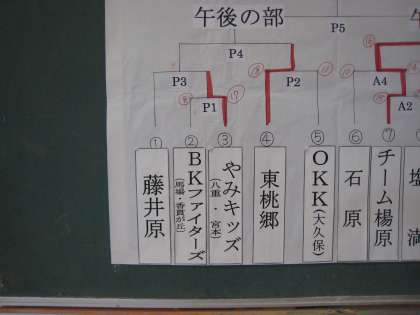 午後の部
P5
P4
P3
P2
A4
P1
A2
① ② ③ ④ ⑤ ⑥ ⑦
藤井原
BKファイターズ
(馬場・香貫が丘)
やみキッズ
(八重・宮本)
東桃郷
OKK(大久保)
石原
チーム楊原
塩満